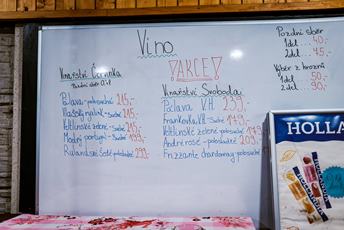 Víno
AKCE!
Vinařství Červinka
Pozdní sběr 0,75l
Pálava - polosuché 245,-
Vlašský ryzlink - suché 215,-
Veltlínské zelené - suché 215,-
Modrý portugal - suché
Rulandské šedé polosladké 299,-
Vinařství Svoboda
Pálava V.H. 239,-
Frankovka V.H. - suché 179,-
Veltlínské zelené - polosuché 179,-
André rosé - polosladké 209,-
Frizzante Chardonnay - polosuché
Pozdní sběr
1dcl .... 20,-
2dcl .... 45,-
Výběr z hroznů
1dcl .... 50,-
2dcl .... 90,-
HOLLA